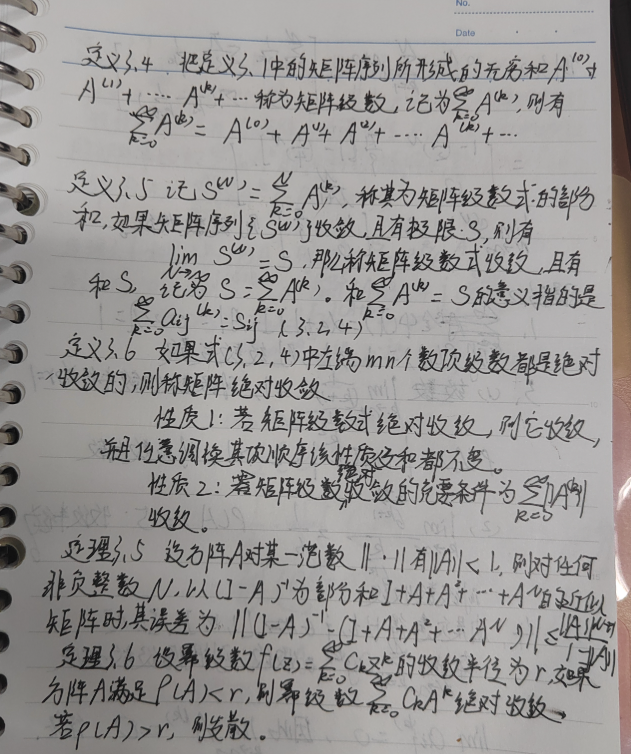 No.
Date
定义3.4 把定义3.1中的矩阵序列所形成的无穷和A^{(0)}+
A^{(1)}+ ···· A^{(k)}+··· 称为矩阵级数,记为∑_{k=0}^{∞} A^{(k)},则有
∑_{k=0}^{∞} A^{(k)} = A^{(0)} + A^{(1)} + A^{(2)} + ···· A^{(k)} + ···
定义3.5 记 S^{(N)} = ∑_{k=0}^{N} A^{(k)},称其为矩阵级数式的部分
和,如果矩阵序列{S^{(N)}}收敛,且有极限S,则有
lim_{N→∞} S^{(N)} = S,那么称矩阵级数式收敛,且有
和S,记为 S=∑_{k=0}^{∞} A^{(k)}。和∑_{k=0}^{∞} A^{(k)} = S的意义指的是
∑_{k=0}^{∞} a_{ij}^{(k)} = S_{ij} (3.2,4)
定义3.6 如果式(3,2,4)中左端mn个数项级数都是绝对
收敛的,则称矩阵绝对收敛.
性质1:若矩阵级数式绝对收敛,则它收敛,
并且任意调换其项顺序该性质及和都不变。
性质2:若矩阵级数绝对收敛的充要条件为∑_{k=0}^{∞} ||A^{(k)}||
收敛。
定理3.5 设方阵A对某一范数 ||·|| 有||A||<1,则对任何
非负整数N,以(I-A)^{-1}为部分和I+A+A^2+···+A^N的近似
矩阵时,其误差为 ||(I-A)^{-1}-(I+A+A^2+···A^N)|| ≤ ||A||^{N+1}/(1-||A||)
定理3.6 设幂级数f(z)=∑_{k=0}^{∞} C_k z^k的收敛半径为r,如果
方阵A满足ρ(A)<r,则幂级数∑_{k=0}^{∞} C_k A^k绝对收敛,
若ρ(A)>r,则发散。